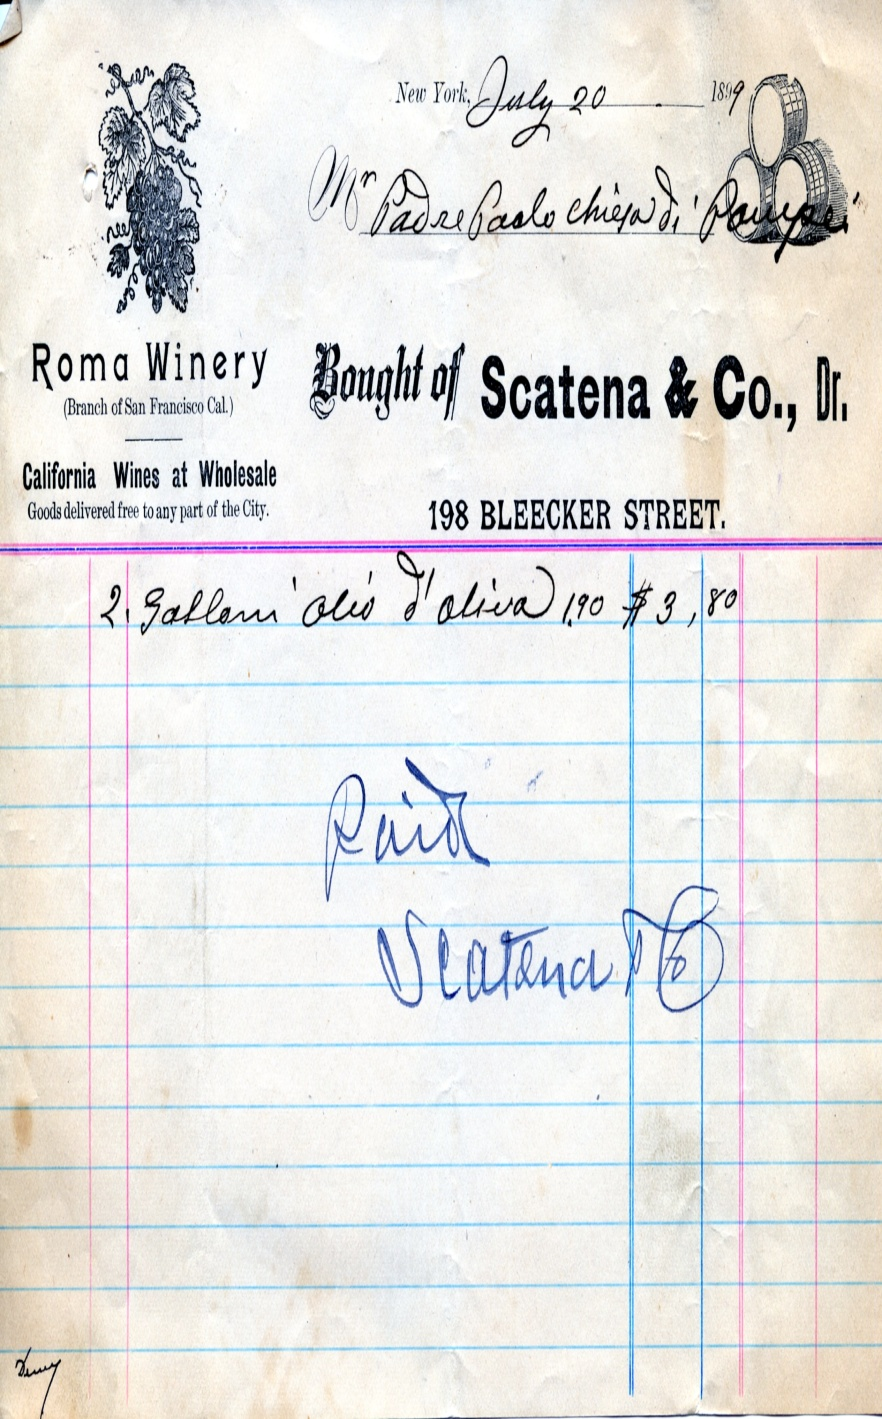 New York, July 20 1899
Mr Padre Paolo Chiesa di Pompei
Roma Winery
(Branch of San Francisco Cal.)
California Wines at Wholesale
Goods delivered free to any part of the City.
Bought of Scatena & Co., Dr.
198 BLEECKER STREET.
2 Galloni Olio d'oliva 1.90 $ 3,80
Paid
Scatena & Co